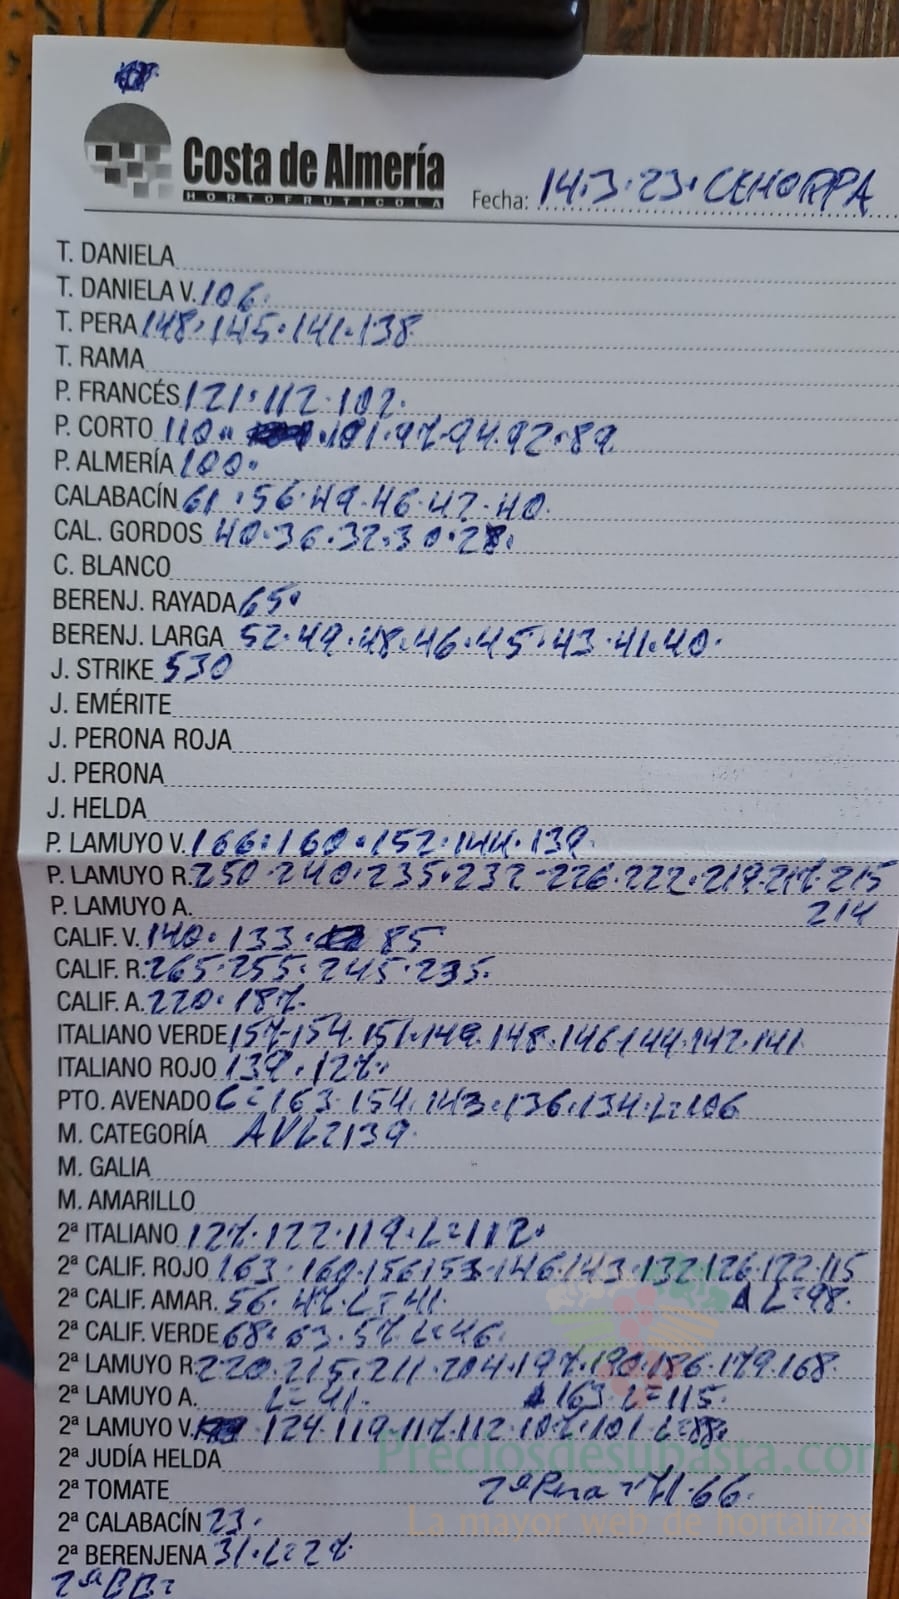 Costa de Almería
HORTOFRUTICOLA
Fecha: 14.3.23. CEHORPA
T. DANIELA
T. DANIELA V. 106.
T. PERA 148.145.141.138
T. RAMA
P. FRANCÉS 121.112.102.
P. CORTO 110. .101.97.94.92.89.
P. ALMERÍA 100.
CALABACÍN 61.56.49.46.42.40.
CAL. GORDOS 40.36.32.30.28.
C. BLANCO
BERENJ. RAYADA 65.
BERENJ. LARGA 52.49.48.46.45.43.41.40.
J. STRIKE 530
J. EMÉRITE
J. PERONA ROJA
J. PERONA
J. HELDA
P. LAMUYO V. 166.160.152.144.139.
P. LAMUYO R. 250.240.235.232-226.222.219.217.215
P. LAMUYO A. 214
CALIF. V. 140.133. 85
CALIF. R. 265.255.245.235.
CALIF. A. 220.187.
ITALIANO VERDE 157-154.151.149.148.146.144.142.141
ITALIANO ROJO 139.127.
PTO. AVENADO C=163.154.143.136.134.L=106
M. CATEGORÍA AVL=139.
M. GALIA
M. AMARILLO
2ª ITALIANO 127.122.119.L=112.
2ª CALIF. ROJO 163.160.156.153.146.143.132.126.122.115
2ª CALIF. AMAR. 56.47.L=41. L=98.
2ª CALIF. VERDE 68.63.57.L=46.
2ª LAMUYO R. 220.215.211.204.197.190.186.179.168
2ª LAMUYO A. L=41. 163 L=115.
2ª LAMUYO V. 124.119.117.112.107.101.L=88.
Preciosdesubasta.com
2ª JUDÍA HELDA
2ª TOMATE 2ª Pera 71.66.
2ª CALABACÍN 23.
La mayor web de hortalizas
2ª BERENJENA 31.L=27.